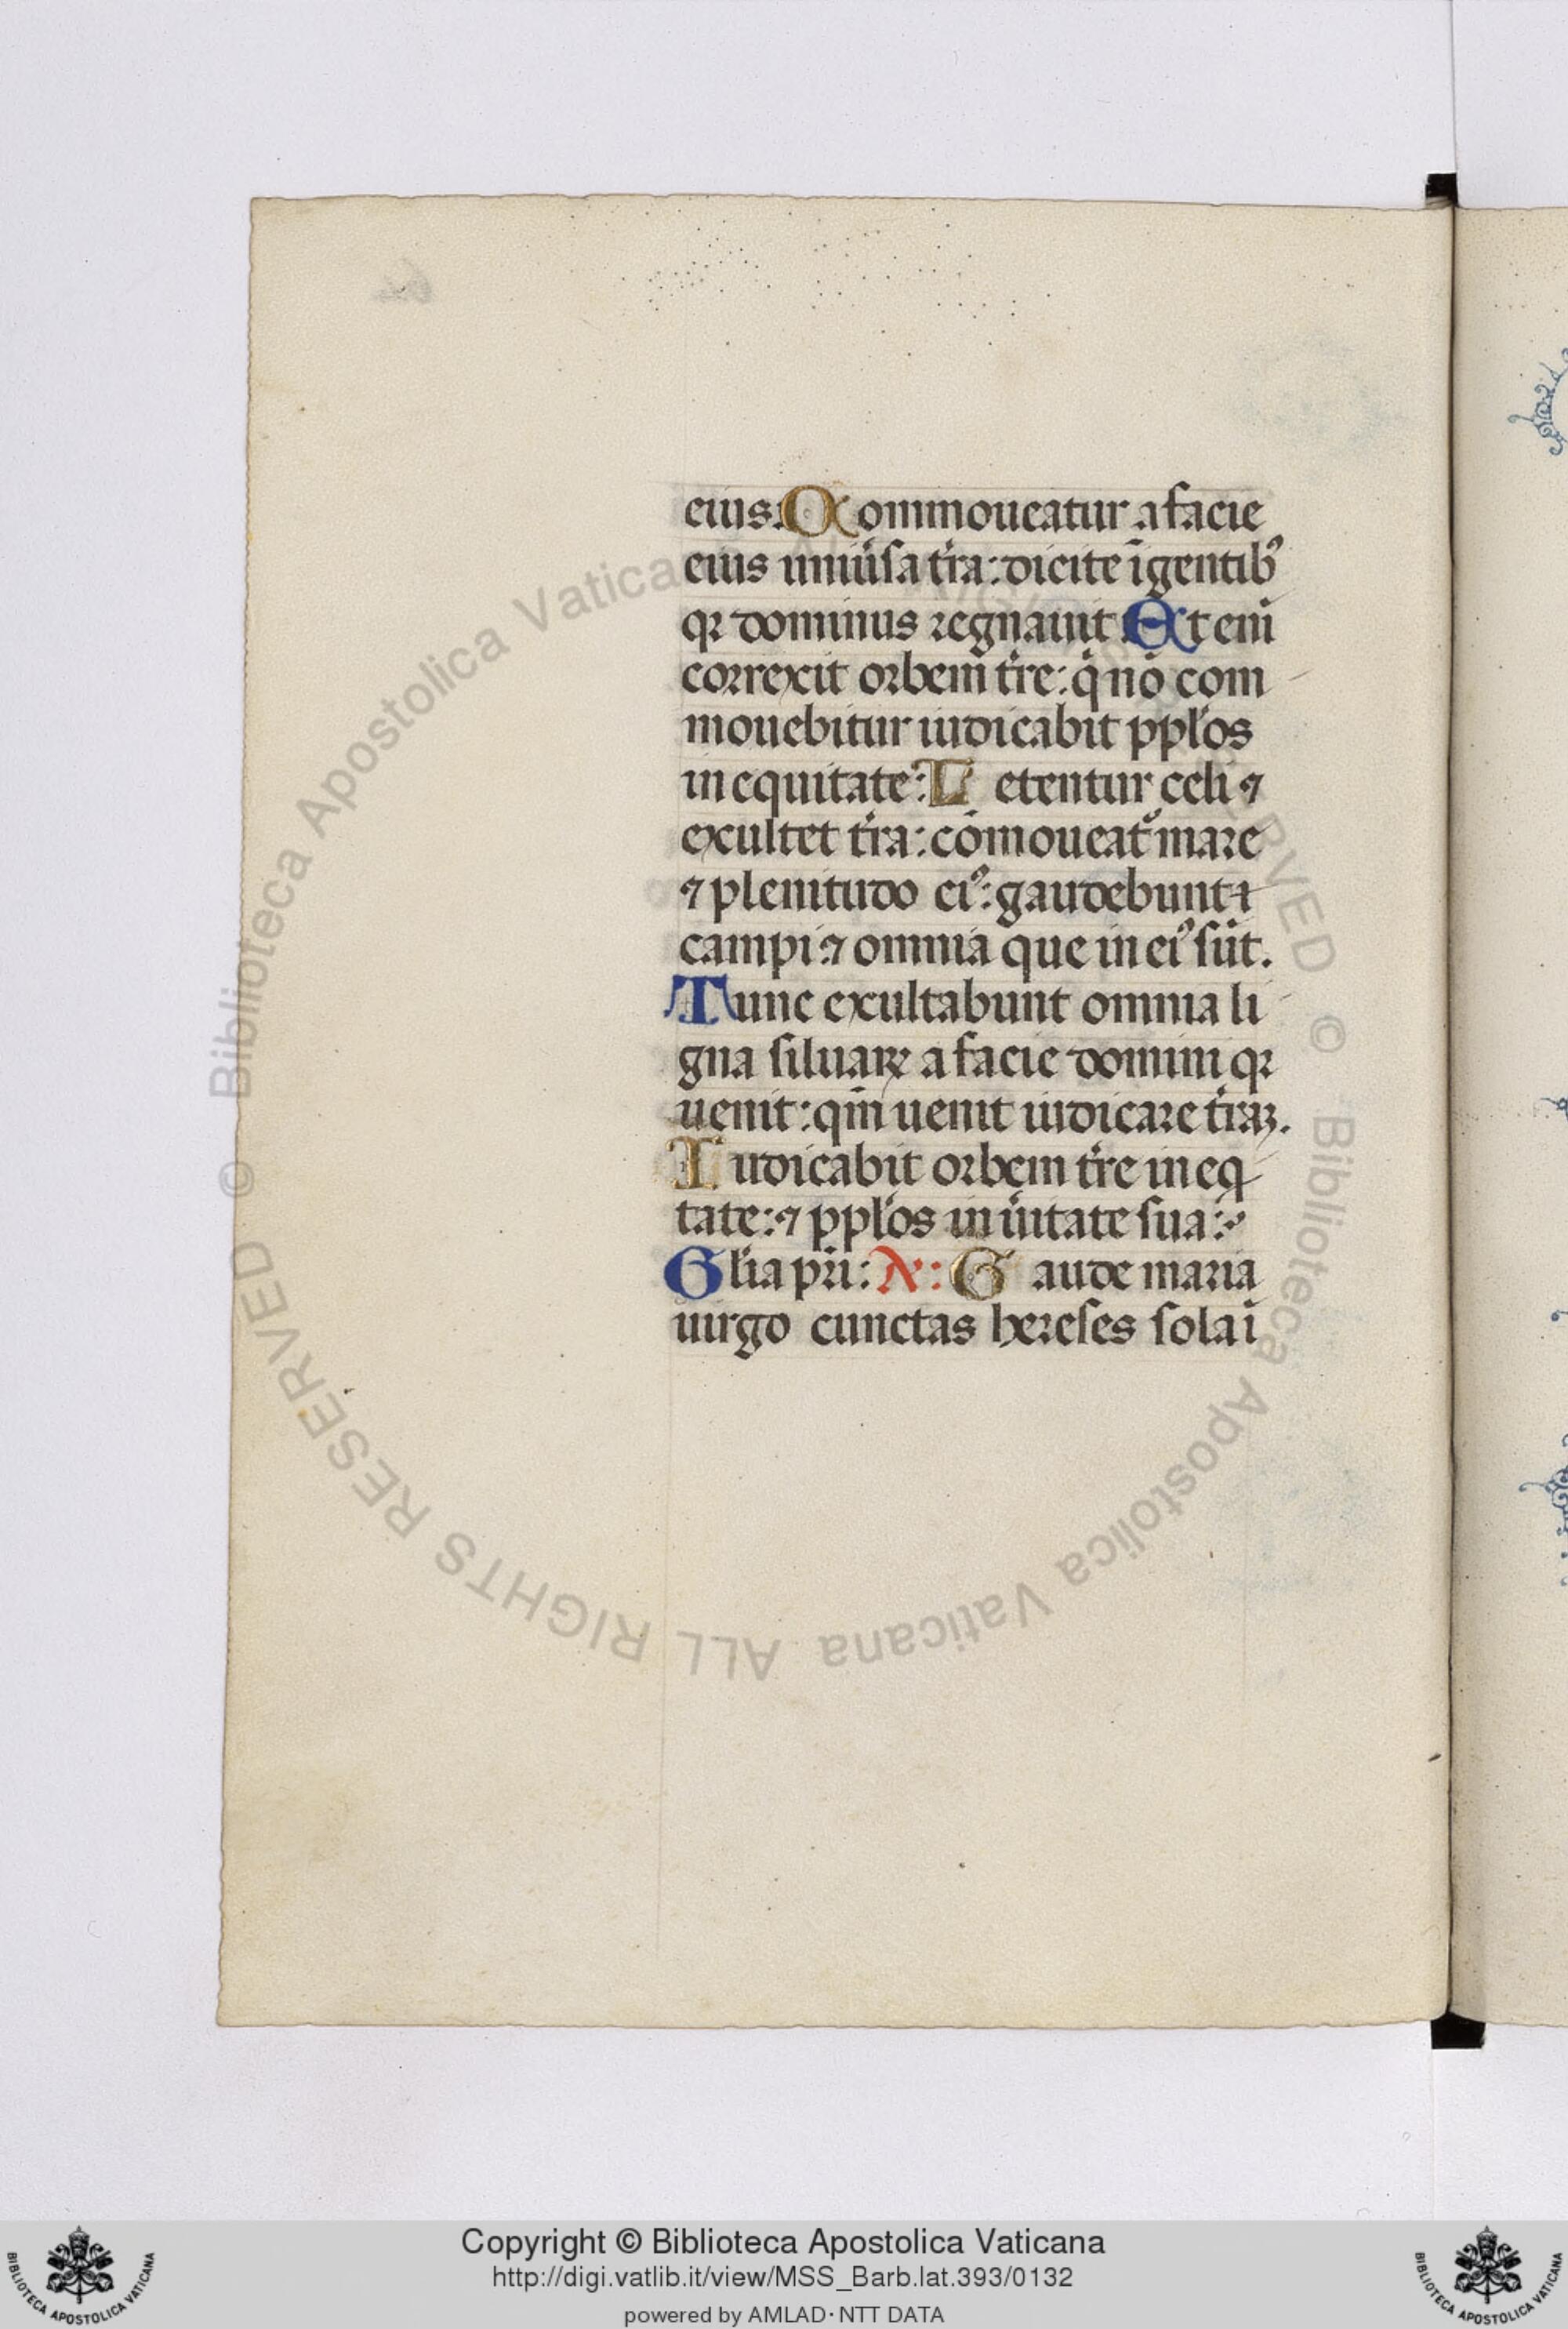 eius: Commoueatur a facie
eius uniu͛sa tr͛a: dicite ī gentibꝰ
qꝛ dominus regnauit Et enī
correxit orbem tr͛e: q̇ nō com
mouebitur iudicabit ppl̓os
in equitate: Letentur celi ⁊
exultet tr͛a: cōmoueat᷑ mare
⁊ plenitudo eiꝰ: gaudebunt
campi ⁊ omnia que in eiꝰ sūt.
Tunc exultabunt omnia li
gna siluaꝝ a facie domini qꝛ
uenit: qm̄ uenit iudicare tr͛aꝫ.
Iudicabit orbem tr͛e in eq
tate: ⁊ ppl̓os in u͛itate sua:
Gl̓ia pr̄i: A: Gaude maria
uirgo cunctas hereses sola ī
© Biblioteca Apostolica Vaticana ALL RIGHTS RESERVED © Biblioteca Apostolica Vaticana ALL RIGHTS RESERVED
Copyright © Biblioteca Apostolica Vaticana
http://digi.vatlib.it/view/MSS_Barb.lat.393/0132
powered by AMLAD·NTT DATA
BIBLIOTECA APOSTOLICA VATICANA
BIBLIOTECA APOSTOLICA VATICANA